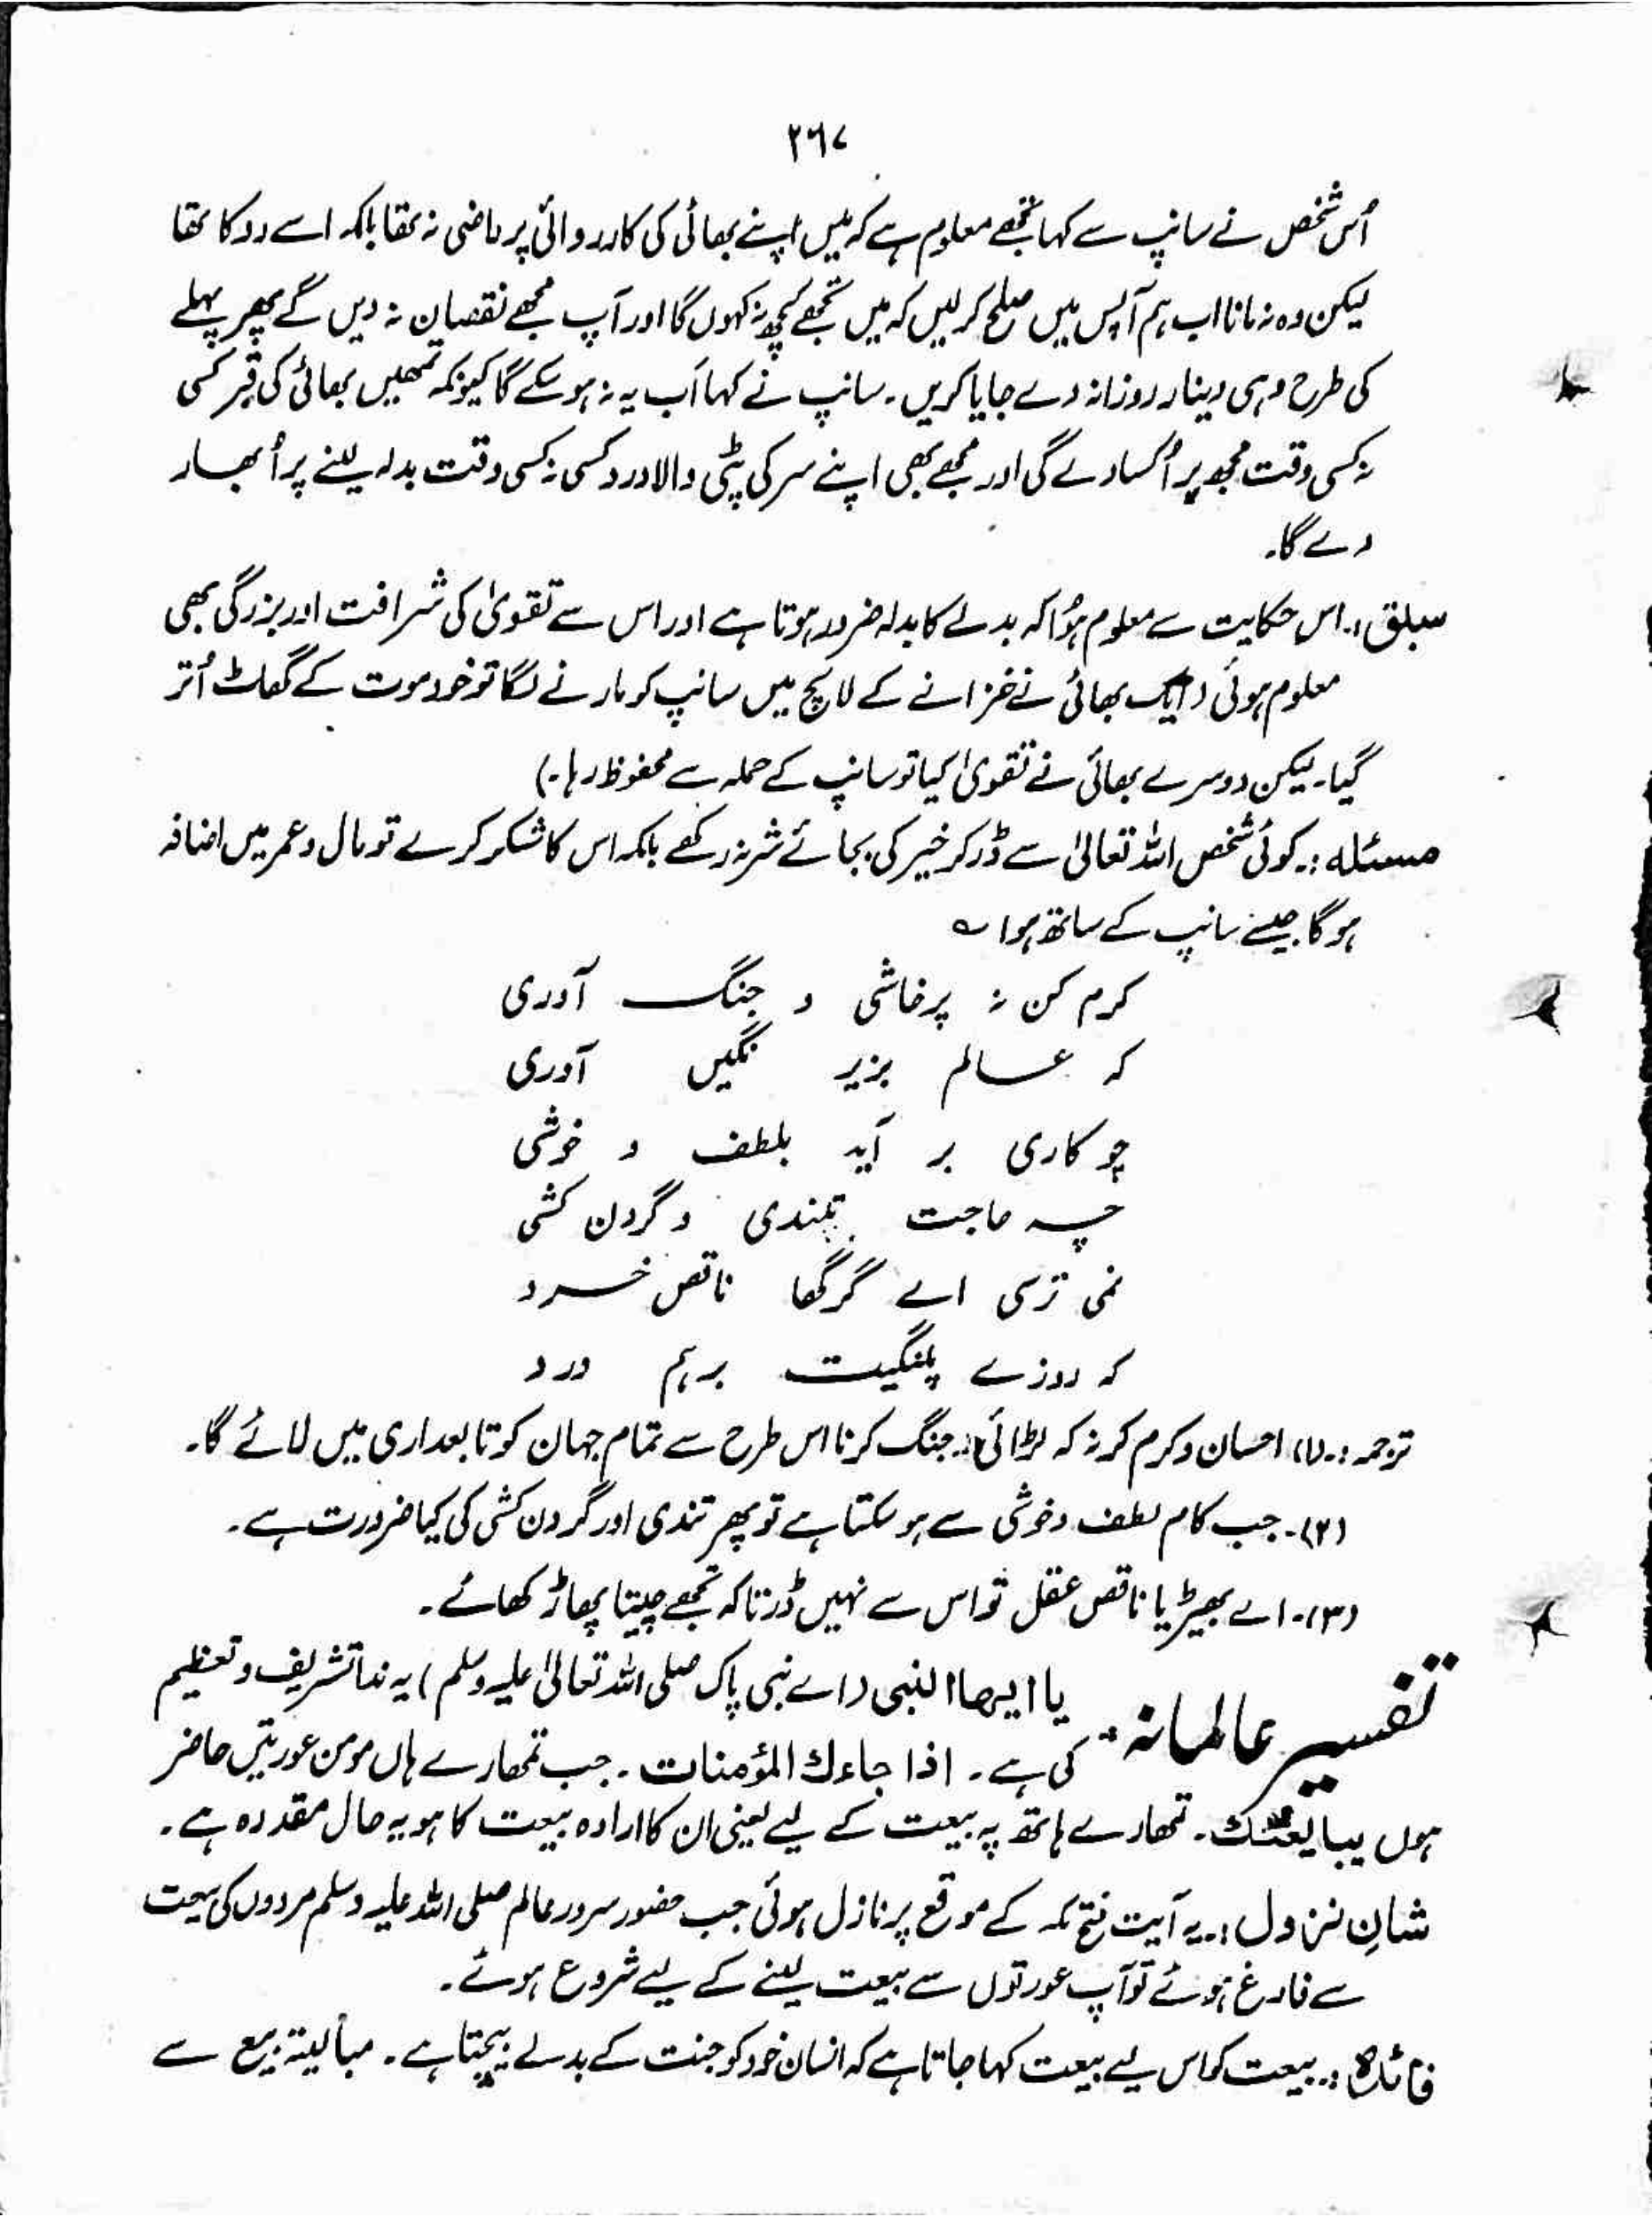 ۲۶۷
اُس شخص نے سانپ سے کہا تجھے معلوم ہے کہ میں اپنے بھائی کی کارروائی پر راضی نہ تھا بلکہ اسے روکا تھا
لیکن وہ نہ مانا اب ہم آپس میں صلح کر لیں کہ میں تجھے کچھ نہ کہوں گا اور آپ مجھے نقصان نہ دیں گے پھر پہلے
کی طرح وہی دینار روزانہ دے جایا کریں۔ سانپ نے کہا اَب یہ نہ ہو سکے گا کیونکہ تمھیں بھائی کی قبر کسی
نہ کسی وقت مجھ پر اُکسا دے گی اور مجھے بھی اپنے سر کی پٹی والا درد کسی نہ کسی وقت بدلہ لینے پر اُبھار
دے گا۔
سبق :۔ اس حکایت سے معلوم ہُوا کہ بدلے کا بدلہ ضرور ہوتا ہے اور اس سے تقویٰ کی شرافت اور بزرگی بھی
معلوم ہوئی (ایک بھائی نے خزانے کے لالچ میں سانپ کو مارنے لگا تو خود موت کے گھاٹ اُتر
گیا۔ لیکن دوسرے بھائی نے تقویٰ کیا تو سانپ کے حملہ سے محفوظ رہا۔)
مسئلہ :۔ کوئی شخص اللہ تعالیٰ سے ڈر کر خیر کی بجائے شر نہ رکھے بلکہ اس کا شکر کرے تو مال و عمر میں اضافہ
ہو گا جیسے سانپ کے ساتھ ہوا ؎
کرم کن نہ پرخاشی و جنگ آوری
کہ عالم بزیر نگیں آوری
چو کاری بر آید بلطف و خوشی
چہ حاجت بتندی و گردن کشی
نمی ترسی اے گرگھا ناقص خرد
کہ روزے پلنگیت برہم درد
ترجمہ :۔ (۱) احسان و کرم کر نہ کہ لڑائی :۔ جنگ کرنا اس طرح سے تمام جہان کو تابعداری میں لائے گا۔
(۲)۔ جب کام لطف و خوشی سے ہو سکتا ہے تو پھر تندی اور گردن کشی کی کیا ضرورت ہے۔
(۳)۔ اے بھیڑیا ناقص عقل تو اس سے نہیں ڈرتا کہ تجھے چیتا پھاڑ کھائے۔
تفسیر عالمانہ :۔ یا ایھا النبی (اے نبی پاک صلی اللہ تعالیٰ علیہ وسلم) یہ ندا تشریف و تعظیم
کی ہے۔ اذا جاءك المؤمنات۔ جب تمھارے ہاں مومن عورتیں حاضر
ہوں یبایعنك۔ تمھارے ہاتھ پہ بیعت کے لیے یعنی ان کا ارادہ بیعت کا ہو یہ حال مقدرہ ہے۔
شانِ نزول :۔ یہ آیت فتح مکہ کے موقع پر نازل ہوئی جب حضور سرور عالم صلی اللہ علیہ وسلم مردوں کی بیعت
سے فارغ ہوئے تو آپ عورتوں سے بیعت لینے کے لیے شروع ہوئے۔
فائدہ :۔ بیعت کو اس لیے بیعت کہا جاتا ہے کہ انسان خود کو جنت کے بدلے بیچتا ہے۔ مبایعۃ بیع سے